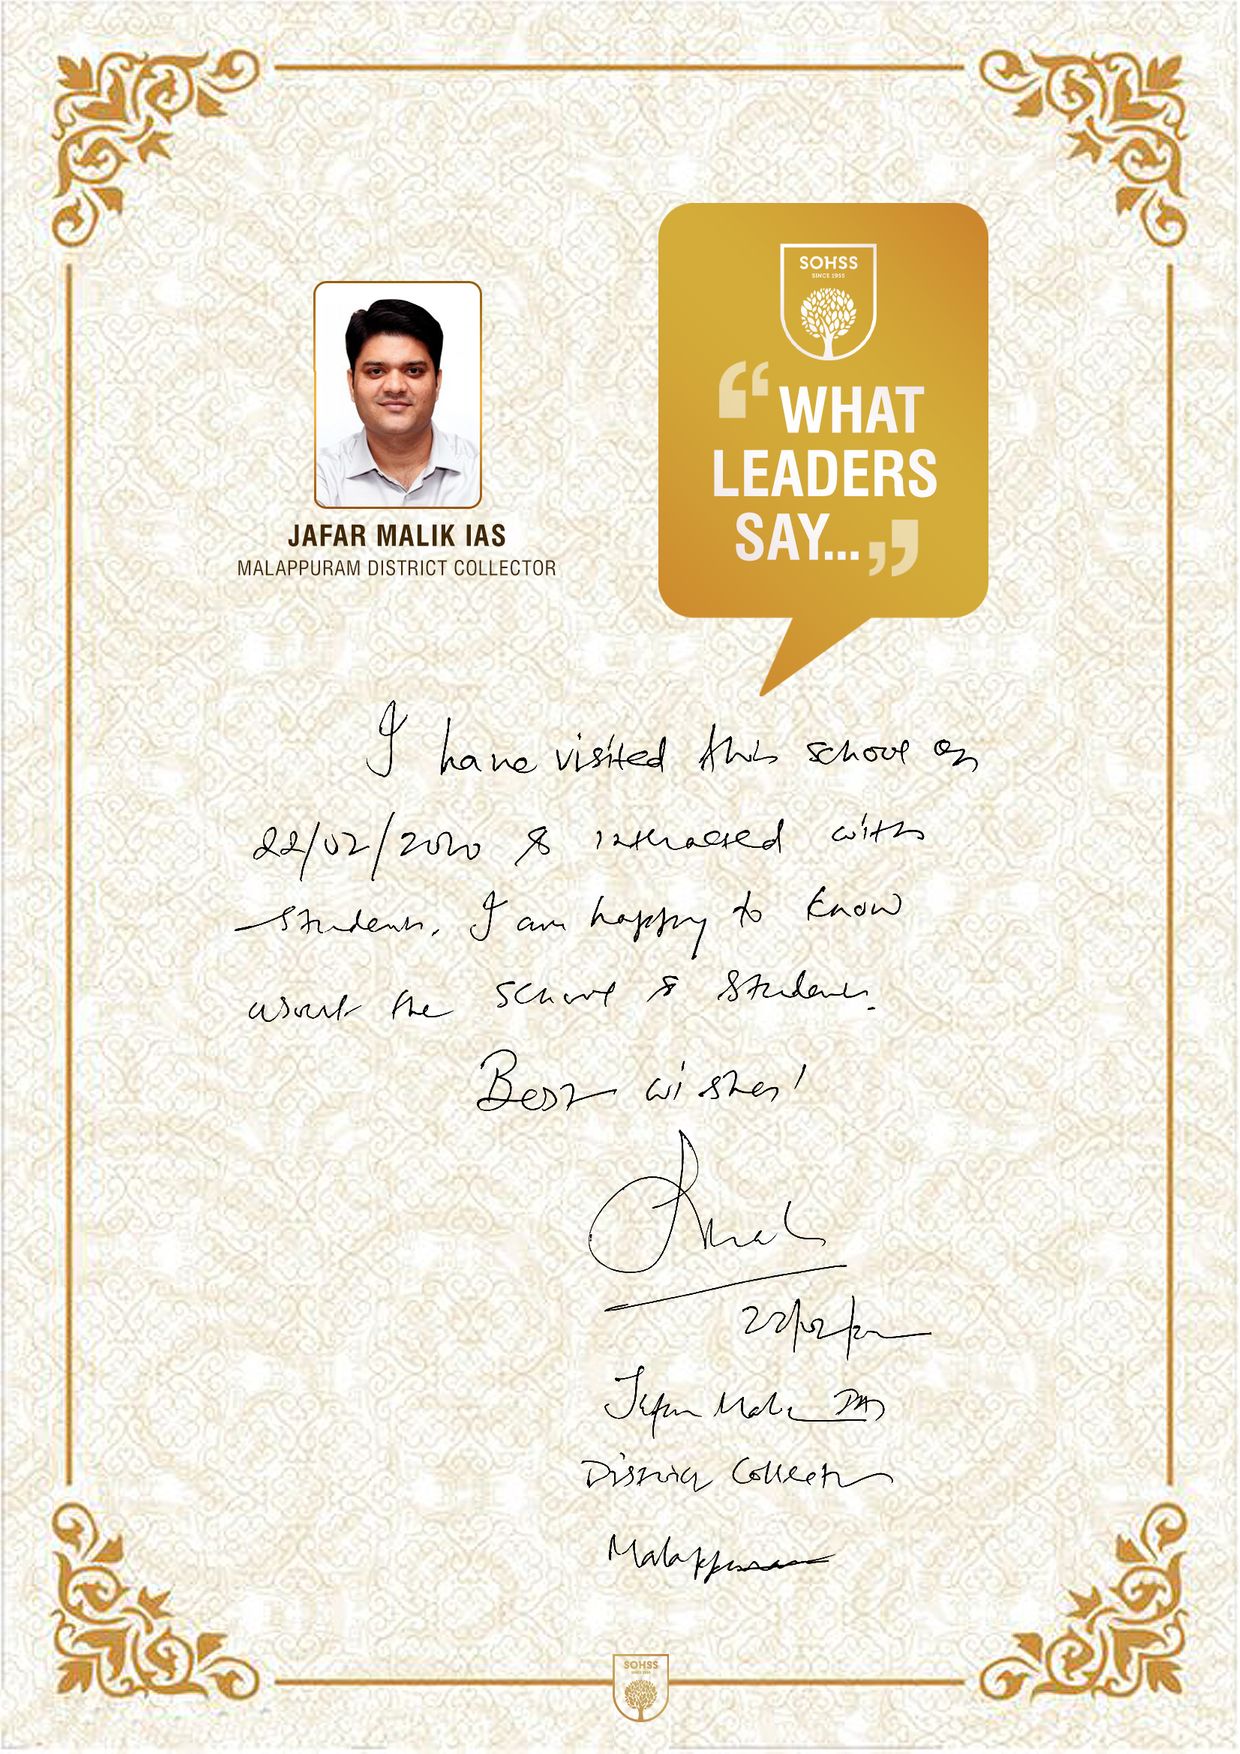 SOHSS
SINCE 1955
“WHAT
LEADERS
SAY...”
JAFAR MALIK IAS
MALAPPURAM DISTRICT COLLECTOR
I have visited this school on
22/02/2020 & interacted with
students. I am happy to know
about the school & students.
Best wishes!
22/02/20
Jafar Malik IAS
District Collector
Malappuram
SOHSS
SINCE 1955